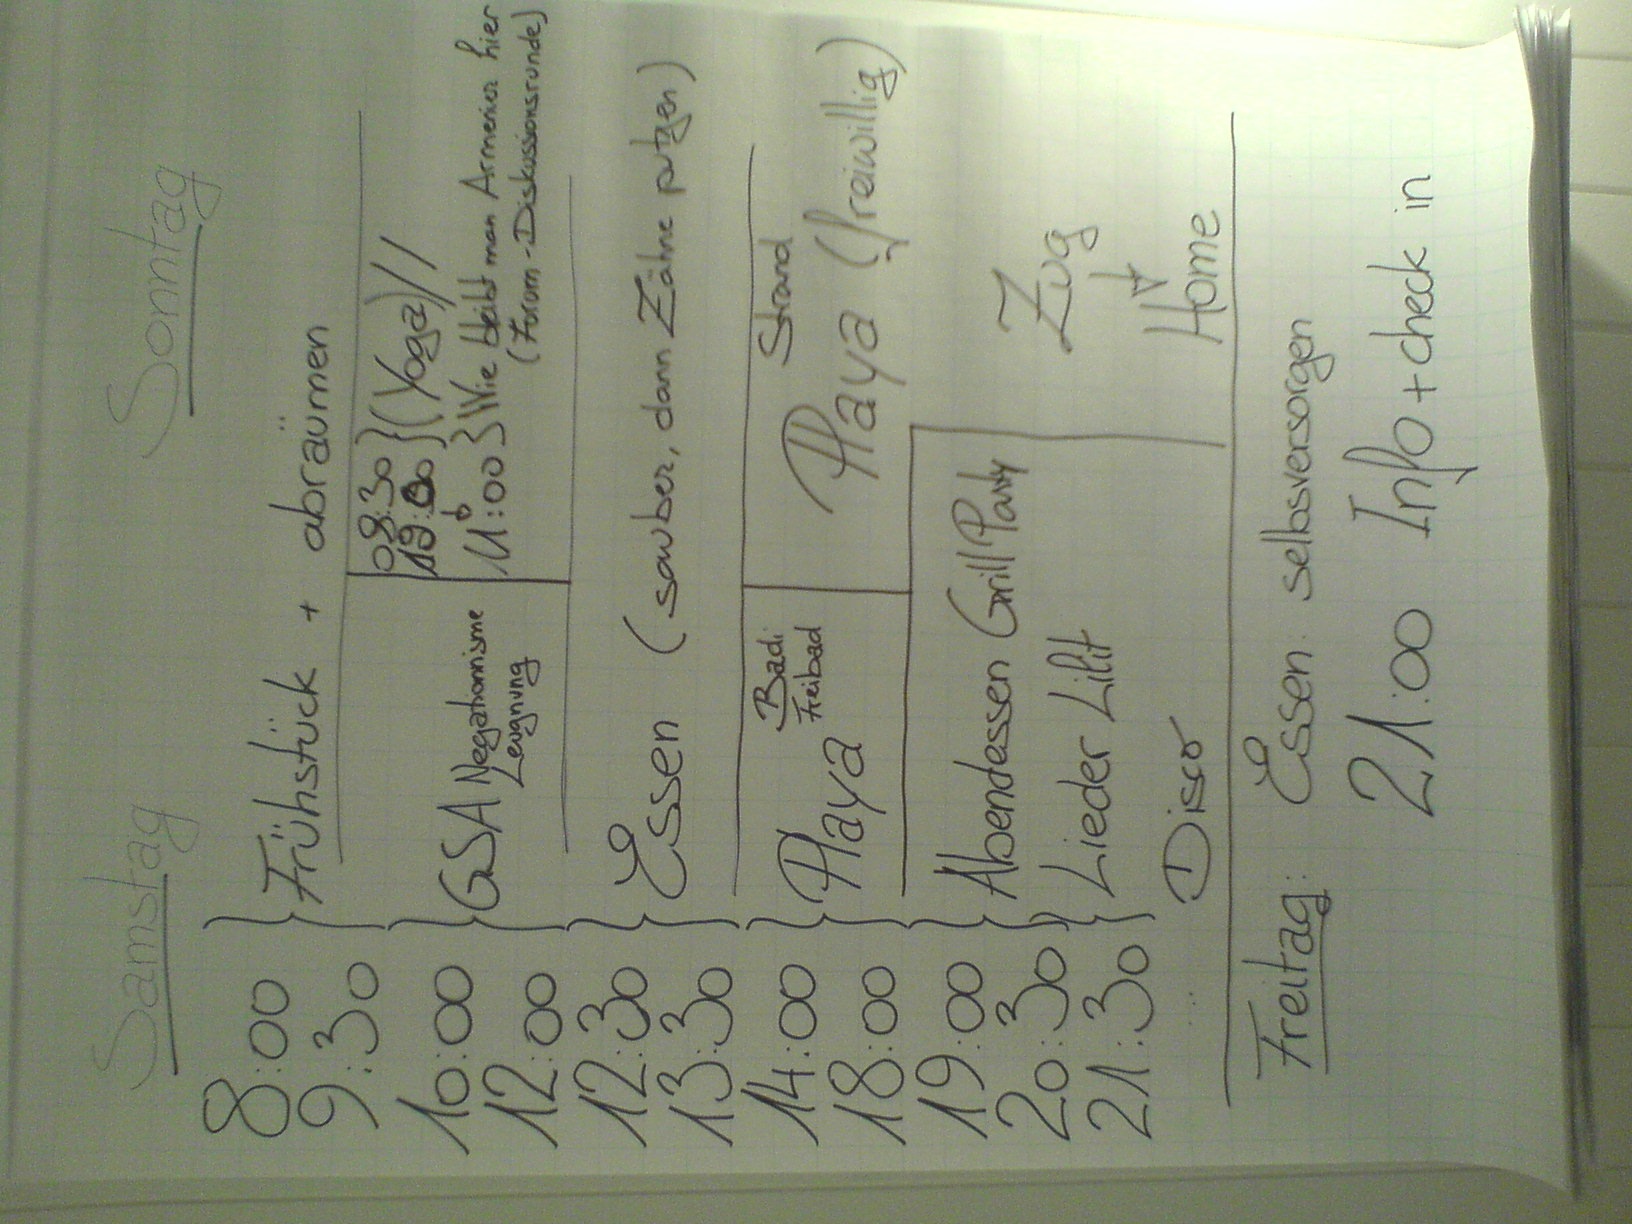 Samstag Sonntag
8:00
9:30 Frühstück + abräumen
08:30
(Yoga)//
10:00
12:00 GSA Negationnisme
Leugnung
11:00 Wie bleibt man Armenier hier
(Forum-Diskussionsrunde)
12:30
13:30 Essen (sauber, dann Zähne putzen)
14:00
18:00 Playa Badi
Freibad
Strand
Playa (freiwillig)
19:00
20:30 Abendessen GrillParty
21:30 Lieder Lilit
... Disco
Zug
Home
Freitag: Essen: selbsversorgen
21:00 Info + check in